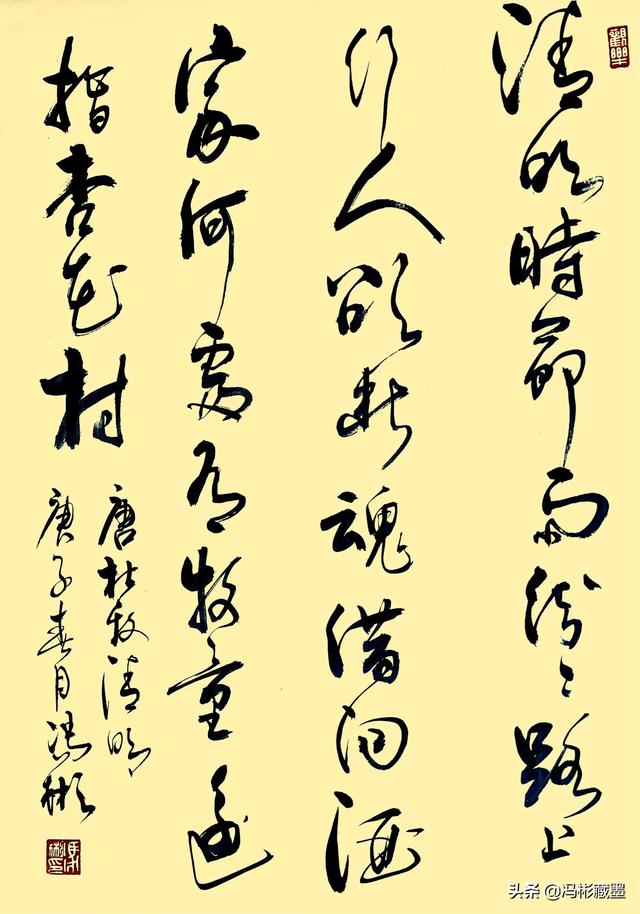 清明時節雨紛〻路上
行人欲斷魂借问酒
家何處有牧童遥
指杏花村
唐杜牧清明
庚子春月馮彬
头条 @冯彬藏墨